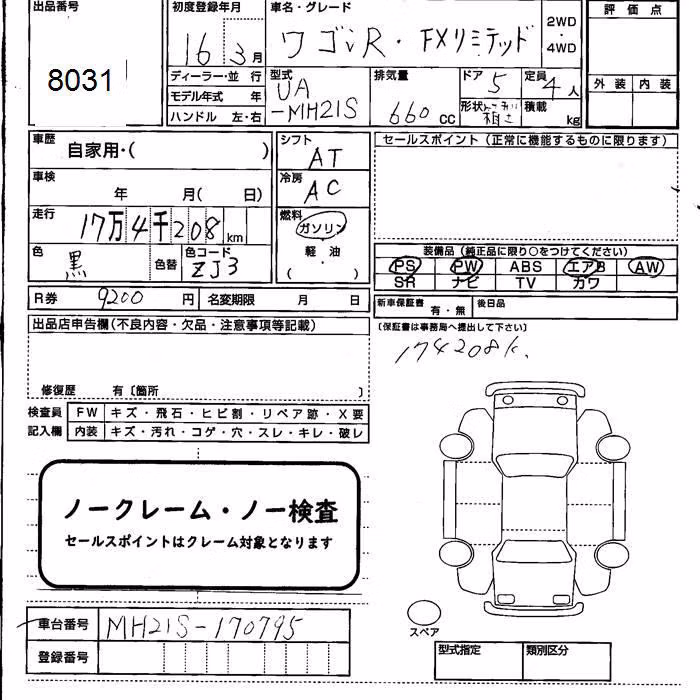 出品番号
8031
初度登録年月
16年 3月
車名・グレード
ワゴンR・FXリミテッド
2WD
・
4WD
評価点
外装 内装
ディーラー・並行
モデル年式 年
ハンドル 左・右
型式
UA
-MH21S
排気量
660 cc
ドア 5
定員 4人
形状
積載 kg
車歴
自家用・( )
車検
年 月( 日)
走行
17万4千208 km
色
黒
色替
色コード
ZJ3
シフト
AT
冷房
AC
燃料
ガソリン
・
軽・油
・
( )
セールスポイント(正常に機能するものに限ります)
装備品(純正品に限り○をつけてください)
PS PW ABS エアB AW
SR ナビ TV カワ
R券 9200 円 名変期限 月 日
新車保証書 有・無 後日品
(保証書は事務局へ提出して下さい)
174208k.
出品店申告欄(不良内容・欠品・注意事項等記載)
修復歴 有〔箇所 〕
検査員 FW キズ・飛石・ヒビ割・リペア跡・X要
記入欄 内装 キズ・汚れ・コゲ・穴・スレ・キレ・破レ
ノークレーム・ノー検査
セールスポイントはクレーム対象となります
スペア
車台番号 MH21S-170795
登録番号
型式指定 類別区分